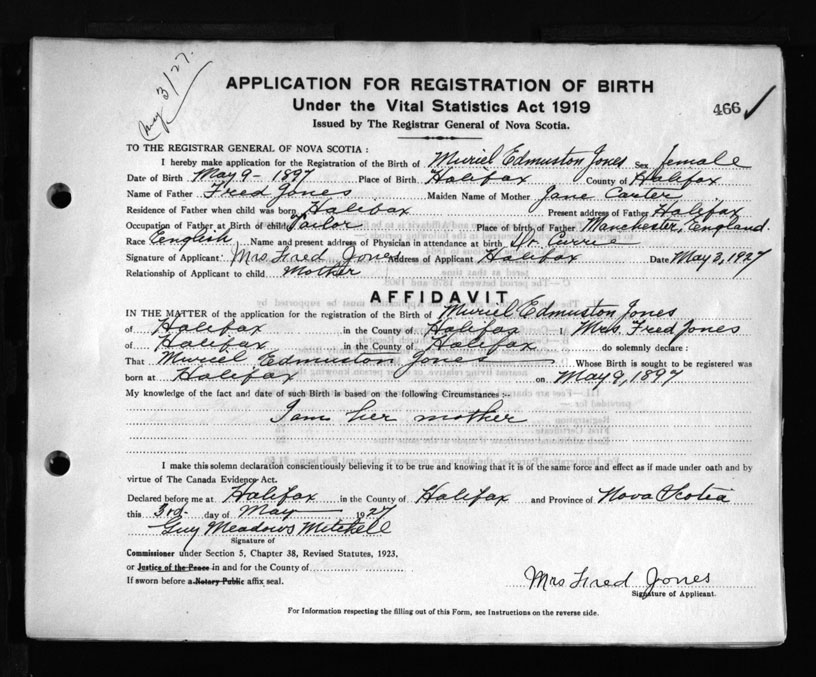 May 3/27.
APPLICATION FOR REGISTRATION OF BIRTH
466 ✓
Under the Vital Statistics Act 1919
Issued by The Registrar General of Nova Scotia.
TO THE REGISTRAR GENERAL OF NOVA SCOTIA :
I hereby make application for the Registration of the Birth of Muriel Edmuston Jones Sex female
Date of Birth May 9 - 1897 Place of Birth Halifax County of Halifax
Name of Father Fred Jones Maiden Name of Mother Jane Carter
Residence of Father when child was born Halifax Present address of Father Halifax
Occupation of Father at Birth of child Tailor Place of birth of Father Manchester, England.
Race English Name and present address of Physician in attendance at birth Dr. Currie
Signature of Applicant Mrs Fred Jones Address of Applicant Halifax Date May 3, 1927
Relationship of Applicant to child Mother
AFFIDAVIT
IN THE MATTER of the application for the registration of the Birth of Muriel Edmuston Jones
of Halifax in the County of Halifax I, Mrs. Fred Jones
of Halifax in the County of Halifax do solemnly declare :
That Muriel Edmuston Jones Whose Birth is sought to be registered was
born at Halifax on May 9, 1897
My knowledge of the fact and date of such Birth is based on the following Circumstances :-
I am her mother
I make this solemn declaration conscientiously believing it to be true and knowing that it is of the same force and effect as if made under oath and by
virtue of The Canada Evidence Act.
Declared before me at Halifax in the County of Halifax and Province of Nova Scotia
this 3rd. day of May 1927
Guy Meadows Mitchell
Signature of
Commissioner under Section 5, Chapter 38, Revised Statutes, 1923,
or Justice of the Peace in and for the County of
If sworn before a Notary Public affix seal.
Mrs Fred Jones
Signature of Applicant.
For Information respecting the filling out of this Form, see Instructions on the reverse side.